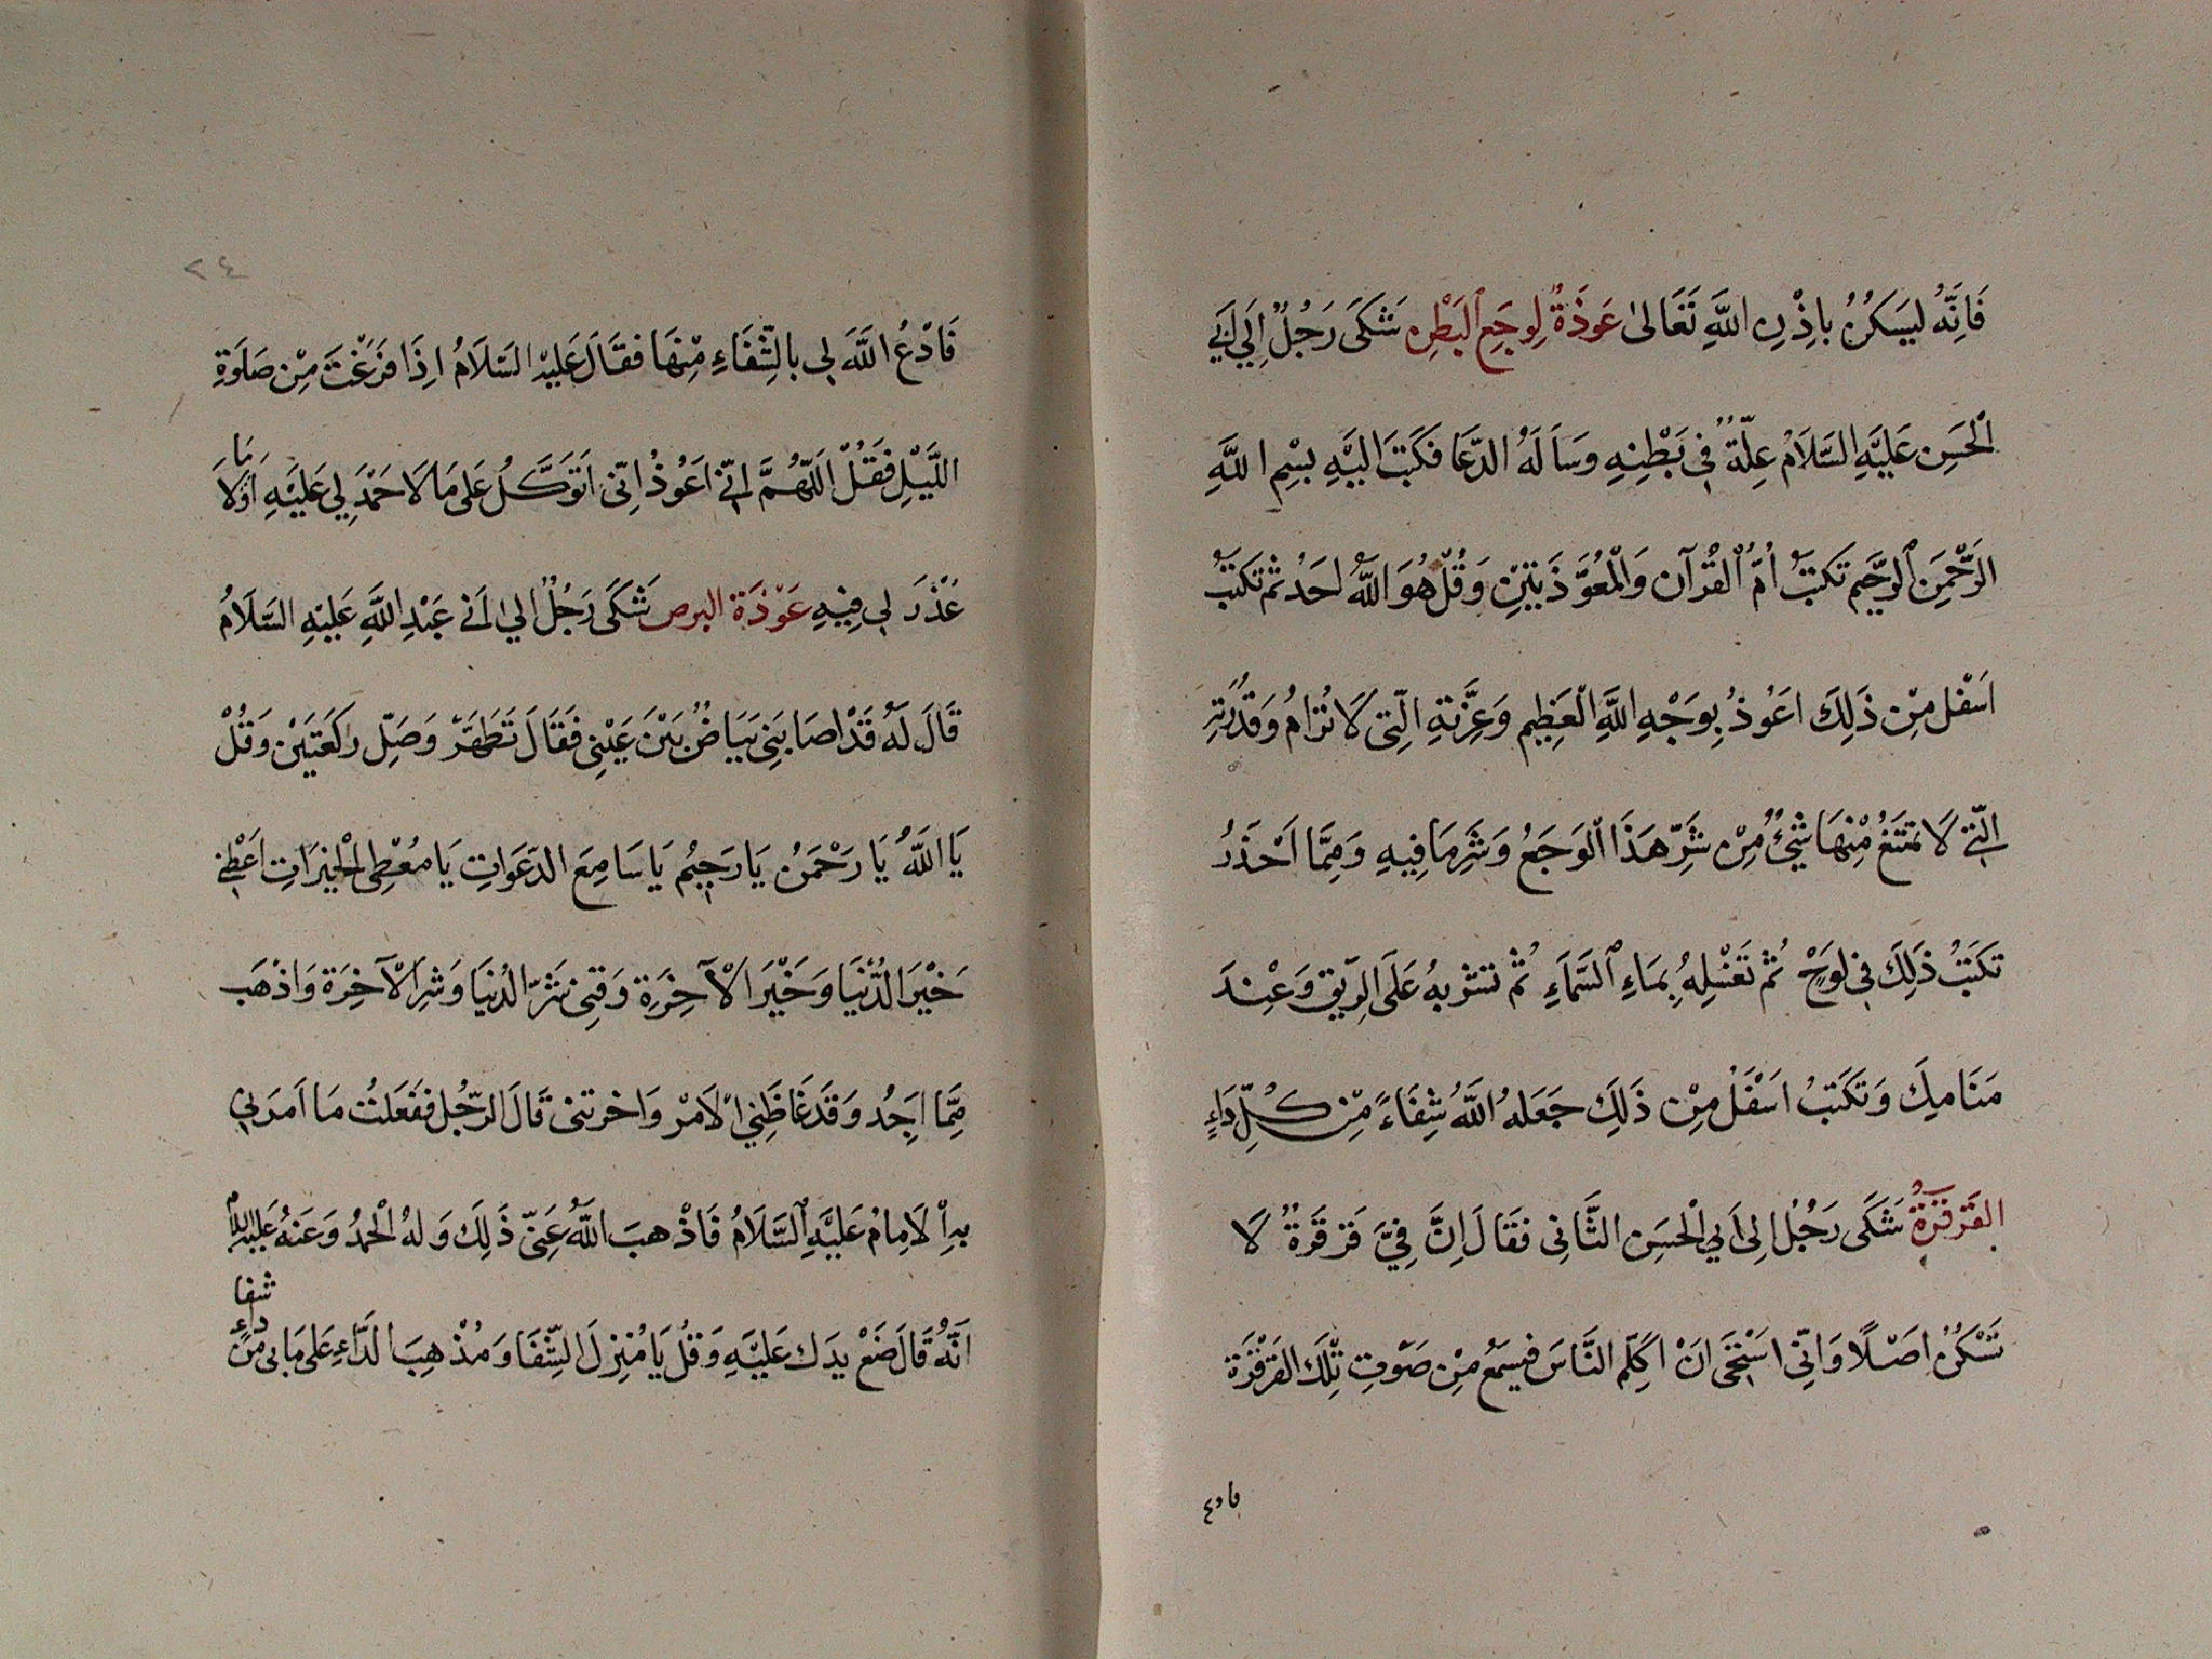 فَاِنَّهُ لیَسَكنُ بِاِذْنِ اللَّهِ تَعَالىٰ عَوذَةٌ لِوجَعِ البَطْنِ شَكَىَ رَجُلٌ اِلي اَبِي
الْحَسَنِ عَلَيْهِ السَّلاَمُ عِلّةً فِي بَطْنِهِ وسَاَلَهُ الدّعَا فكَتَبَ الَيْهِ بِسْمِ اللَّهِ
الرَّحْمَنِ الرَّحِيمِ تكتبُ اُمَّ القُرْآن وَالْمُعَوَّذَتَيْنِ وَقُلْ هُوَ اللَّهُ احَدٌ ثُم تكتبُ
اَسْفل مِنْ ذَلِكَ اعَوُذُ بِوَجْهِ اللَّهِ الْعَظِيمِ وَعِزَّتِهِ الَّتِى لاَ تُرَامُ وَقدْرَتِهِ
الَّتِي لاَ يمتَنعُ مِنْهَا شَيْءٌ مِنْ شَرّ هَذَا الْوَجَعُ وَشَرِ مَا فِيهِ وَمِمَّا اَحْذَرُ
تكَتَبُ ذَلِكَ فِي لوَحٍْ ثُم تَغَسْلهُ بِمَاءِ السَّمَاءِ ثُم تشربهُ عَلَى الرِّيقِ وَعِنْدَ
مَنَامكَ وَتكَتبُ اسْفَلْ مِنْ ذَلِكَ جَعَلهُ اللَّهُ شِفَاءً مِنْ كُلِّ دَاءٍ
القَرقرَةُ شَكَى رَجُلٌ اِلى اَبي الْحسَنِ الثَّانِى فقَالَ اِنَّ فِيَّ قَرْقَرَةً لاَ
تَسْكنُ اصَْلًا وَانِّي اسَتْحَى انْ اكَلّم النَّاسَ فيسَمْعُ مِنْ صَوتِ تِلْكَ القرْقرَة
فادع
٢٤
فَادْعُ اللَّهَ لِي بالشِّفَاءِ مِنْهَا فقَالَ عَليْهِ السَّلاَمُ اِذَا فَرَغْتَ مِنْ صَلَوَةِ
اللَّيْلِ فَقُلْ اَللّهُمَّ اِنِّي اعَوُذُ اِنّى اَتَوَكَّلُ عَلى مَا لاَ حَمْدَ لِي عَلَيْهِ اَوْلاَ
مَا
عُذْرَ لِي فِيهِ عَوْذَة البرص شَكَى رَجُلٌ الىٰ اَبي عَبْدِ اللَّهِ عَليْهِ السَّلاَمُ
قَالَ لَهُ قَدْ اصَابَنِي بَيَاضٌ بَيْنَ عَيْنِى فَقَالَ تَطَهَّرَ وَصَلِّ ركَعَتَيْن وَقُلْ
يَا اللَّهُ يَا رَحْمَنُ يَا رَحِيُم يَا سَامِعَ الدّعَوَاتِ يَا معْطِى الْخيرَاتِ اَعْطِنِي
خَيْرَ الدُّنْيَا وَخَيْرَ الْآخِرَةِ وَقِنِى شَرّ الدُنيَا وَشِرَ الاْآخِرَة وَاذْهَب
مِمَّا اجِدُ وَقَدَ غَاظَنِي الاَمْر وَاخرتنى قَالَ الرّجُل ففَعَلتُ مَا اَمرَنِي
بهِ الاِمَامُ عَليَْهِ السَّلَامُ فَاذْهبَ اللَّهُ عَنِىّ ذَلِكَ وَلهُ الْحمدُ وَعَنهُ عَليه السلام
اَنَّهُ قَالَ ضَعْ يدَك عَليَْهِ وَقُل يَا مُنْزِلَ الشِّفَا وَمُذْهِبَ الدَّاءِ عَلى مَا بى مِنْ
داء
شفا